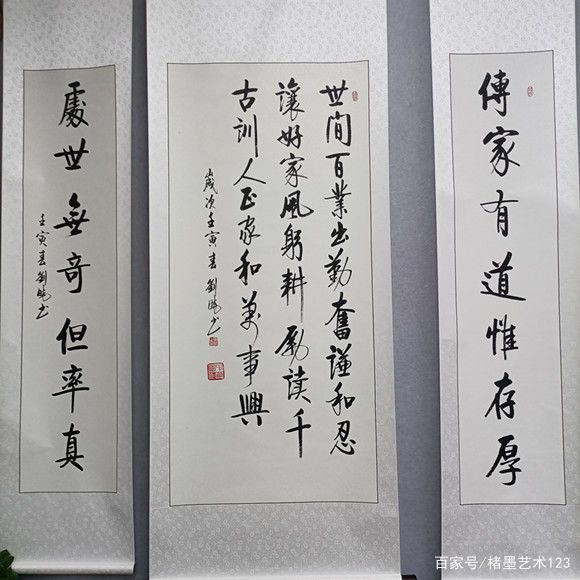 傳家有道惟存厚
世間百業出勤奮謙和忍
讓好家風躬耕勵讀千
古訓人正家和萬事興
歲次壬寅春劉书
處世無奇但率真
壬寅春劉书
百家号/楮墨艺术123